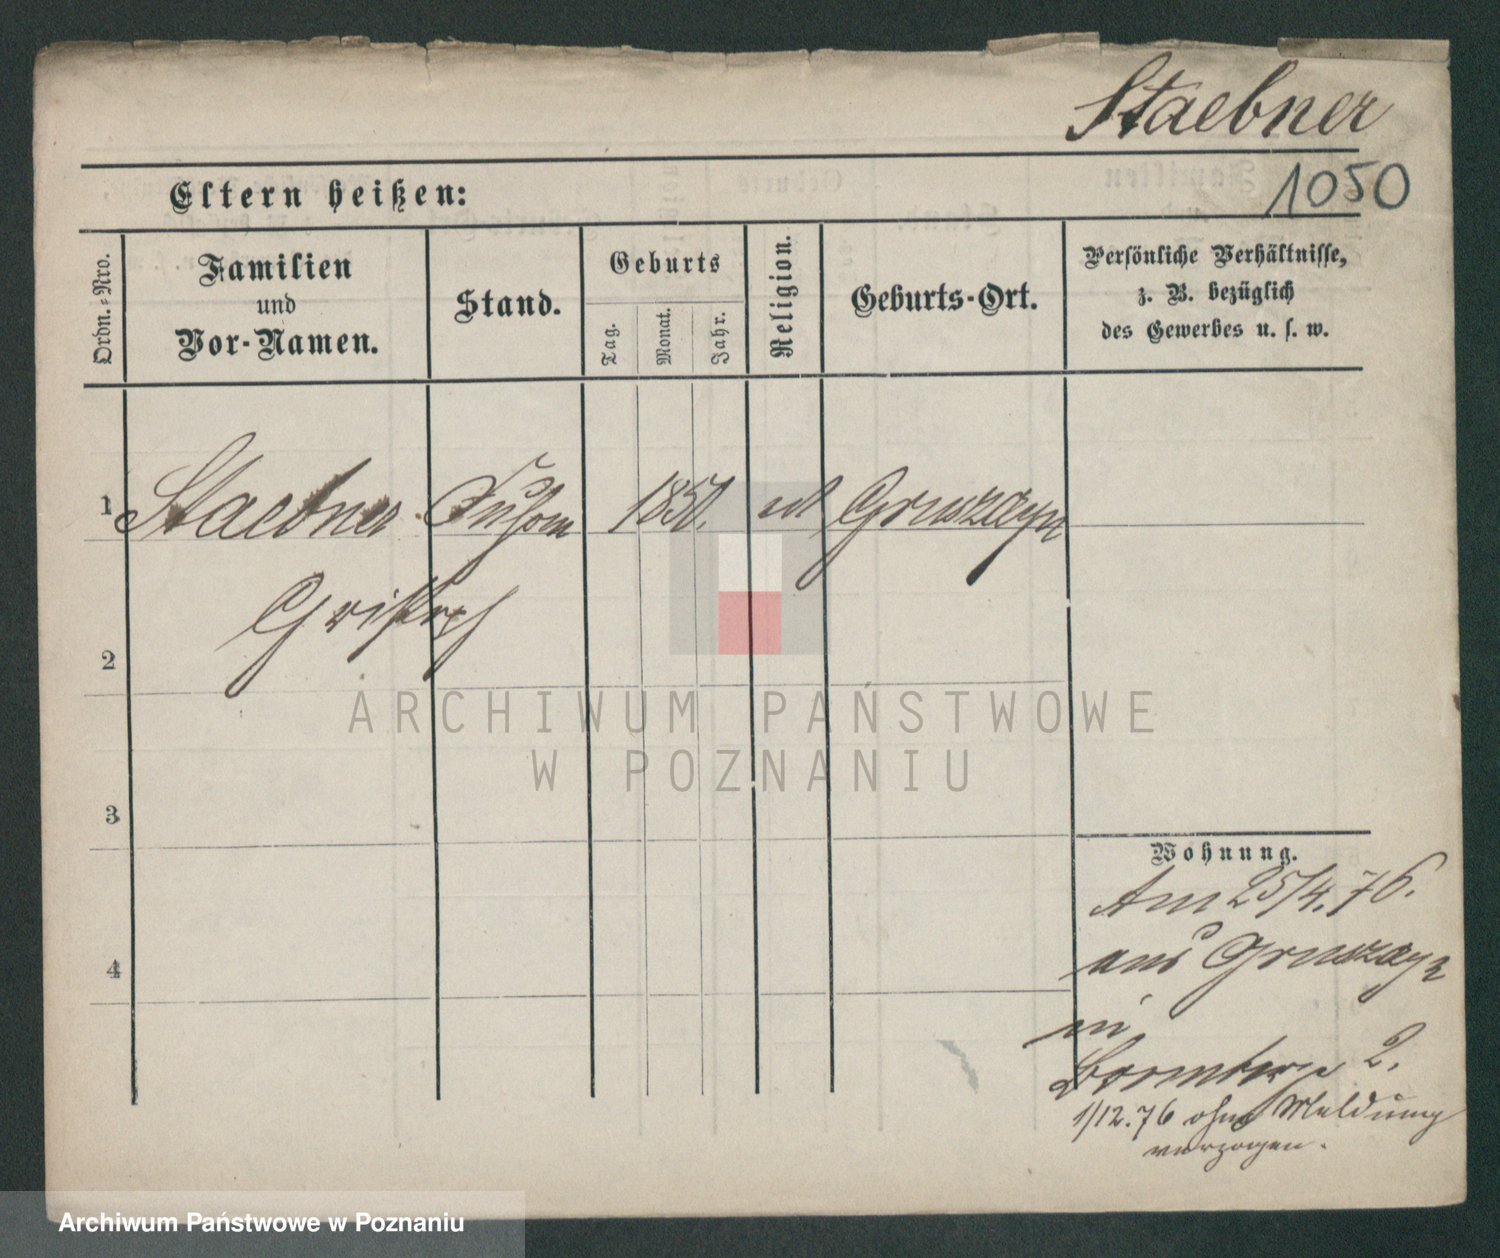 Staebner
1050
Eltern heißen:
Ordn.-Nro.
Familien
und
Vor-Namen.
Stand.
Geburts
Tag.
Monat.
Jahr.
Religion.
Geburts-Ort.
Persönliche Verhältnisse,
z. B. bezüglich
des Gewerbes u. s. w.
1 Staebner 1850. Gruszczyn
2
3
4
Wohnung.
Am 25/4. 76.
aus Gruszczyn
in
2.
1/12. 76 ohne Meldung
verzogen.
ARCHIWUM PAŃSTWOWE
W POZNANIU
Archiwum Państwowe w Poznaniu